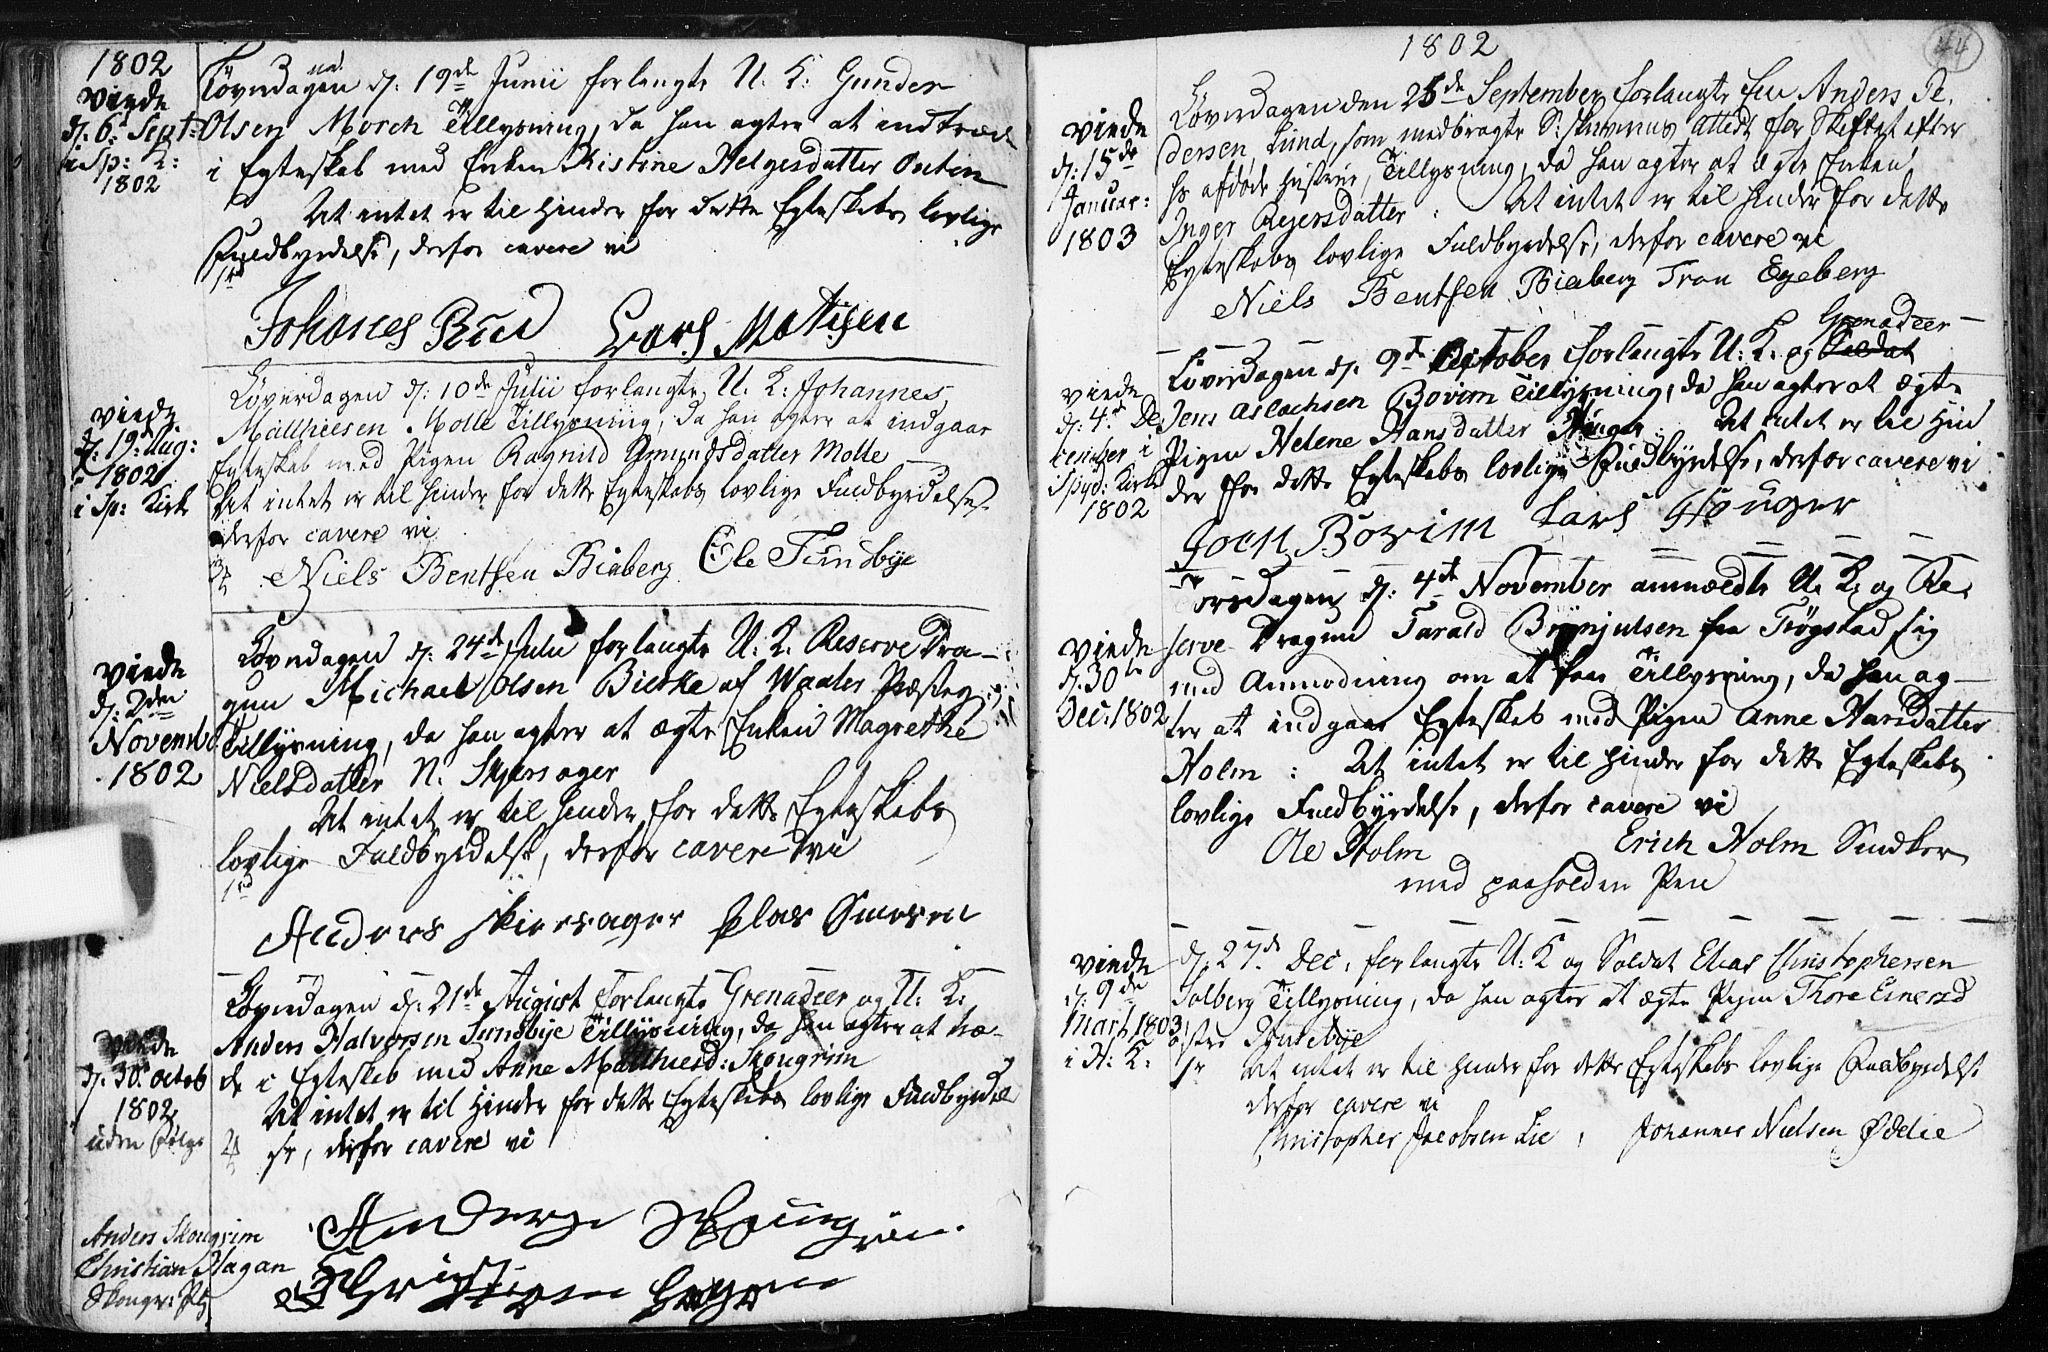 1802
Viede
d: 6: Sept:
i Sp: K:
1802
Løverdagen d: 19de Junii forlangte U: K: Gunder
Olsen Morch Tillysning, da han agter at indtræde
i Egteskab med Enken Kistine Helgesdatter
At intet er til Hinder for dette Egteskabs lovlige
Fuldbyrdelse, derfor cavere vi
Johanes Lars Matisen
Viede
d: 19de Aug:
1802
i Sp: Kirke
Løverdagen d: 10de Julii forlangte U: K: Johannes
Matthiesen Molle Tillysning, da han agter at indgaae
Egteskab med Pigen Ragnild Amundsdatter Molle
At intet er til Hinder for dette Egteskabs lovlige Fuldbyrdelse
derfor cavere vi
Niels Bentsen Biaberg Ole Sundbye
Viede
d: 2den
Novemb
1802
Løverdagen d: 24de Julii forlangte U: K: Reserve Dra-
gun Michael Olsen Bierke af Waaler Præsteg:
Tillysning, da han agter at ægte Enken Magrethe
Nielsdatter N: Skiersager
At intet er til Hinder for dette Egteskabs
lovlige Fuldbyrdelse, derfor cavere vi
Anders Skiersager
Viede
d: 30te Octob
1802
uden Følge
Løverdagen d: 21de August forlangte Grenadeer og U: K:
Anders Halvorsen Sundbye Tillysning, da han agter at træ-
de i Egteskab med Anne Matthiesd: Skougrim
At intet er til Hinder for dette Egteskabs lovlige Fuldbyrdel
se, derfor cavere vi
Anders Skougrim
Christian Hagan
Anders Skougrim
Christian Hagan
44
1802
Viede
d: 15de
Januar:
1803
Løverdagen den 25de September forlangte Em Anders Pe-
dersen Lund, som medbragte S: Skrivers Attest for Skiftet efter
hs afdøde Hustrue, Tillysning, da han agter at ægte Enken
Inger Reiersdatter : At intet er til Hinder for dette
Egteskabs lovlige Fuldbyrdelse, derfor cavere vi
Niels Bentsen Biaberg Tron Egeberg
Viede
d: 4de De
cember i
Spyd: Kirke
1802
Grenadeer
Løverdagen d: 9de October forlangte U: K: og Soldat
Jens Aslachsen Bovim Tillysning, da han agter at ægte
Pigen Helene Hansdatter : At intet er til Hin
der for dette Egteskabs lovlige Fuldbyrdelse, derfor cavere vi
Joen Bovim Lars
Viede
d: 30te
Dec: 1802
Torsdagen d: 4de November anmeldte U: K: og Re-
serve Dragun Tarald Brynjulsen fra Trøgstad sig
med Anmodning om at faae Tillysning, da han ag-
ter at indgaae Egteskab med Pigen Anne Hansdatter
Holm : At intet er til Hinder for dette Egteskabs
lovlige Fuldbyrdelse, derfor cavere vi
Ole Holm Erich Holm
med paaholden Pen
Viede
d: 9de
Marts 1803
i H: K:
d: 27de Dec: forlangte U: K og Soldat Elias Christophersen
Solberg Tillysning, da han agter at ægte Pigen Thore Einersd
østre
At intet er til Hinder for dette Egteskabs lovlige Fuldbyrdelse
derfor cavere vi
Christopher Jacobsen Lie , Johannes Nielsen Ødelie